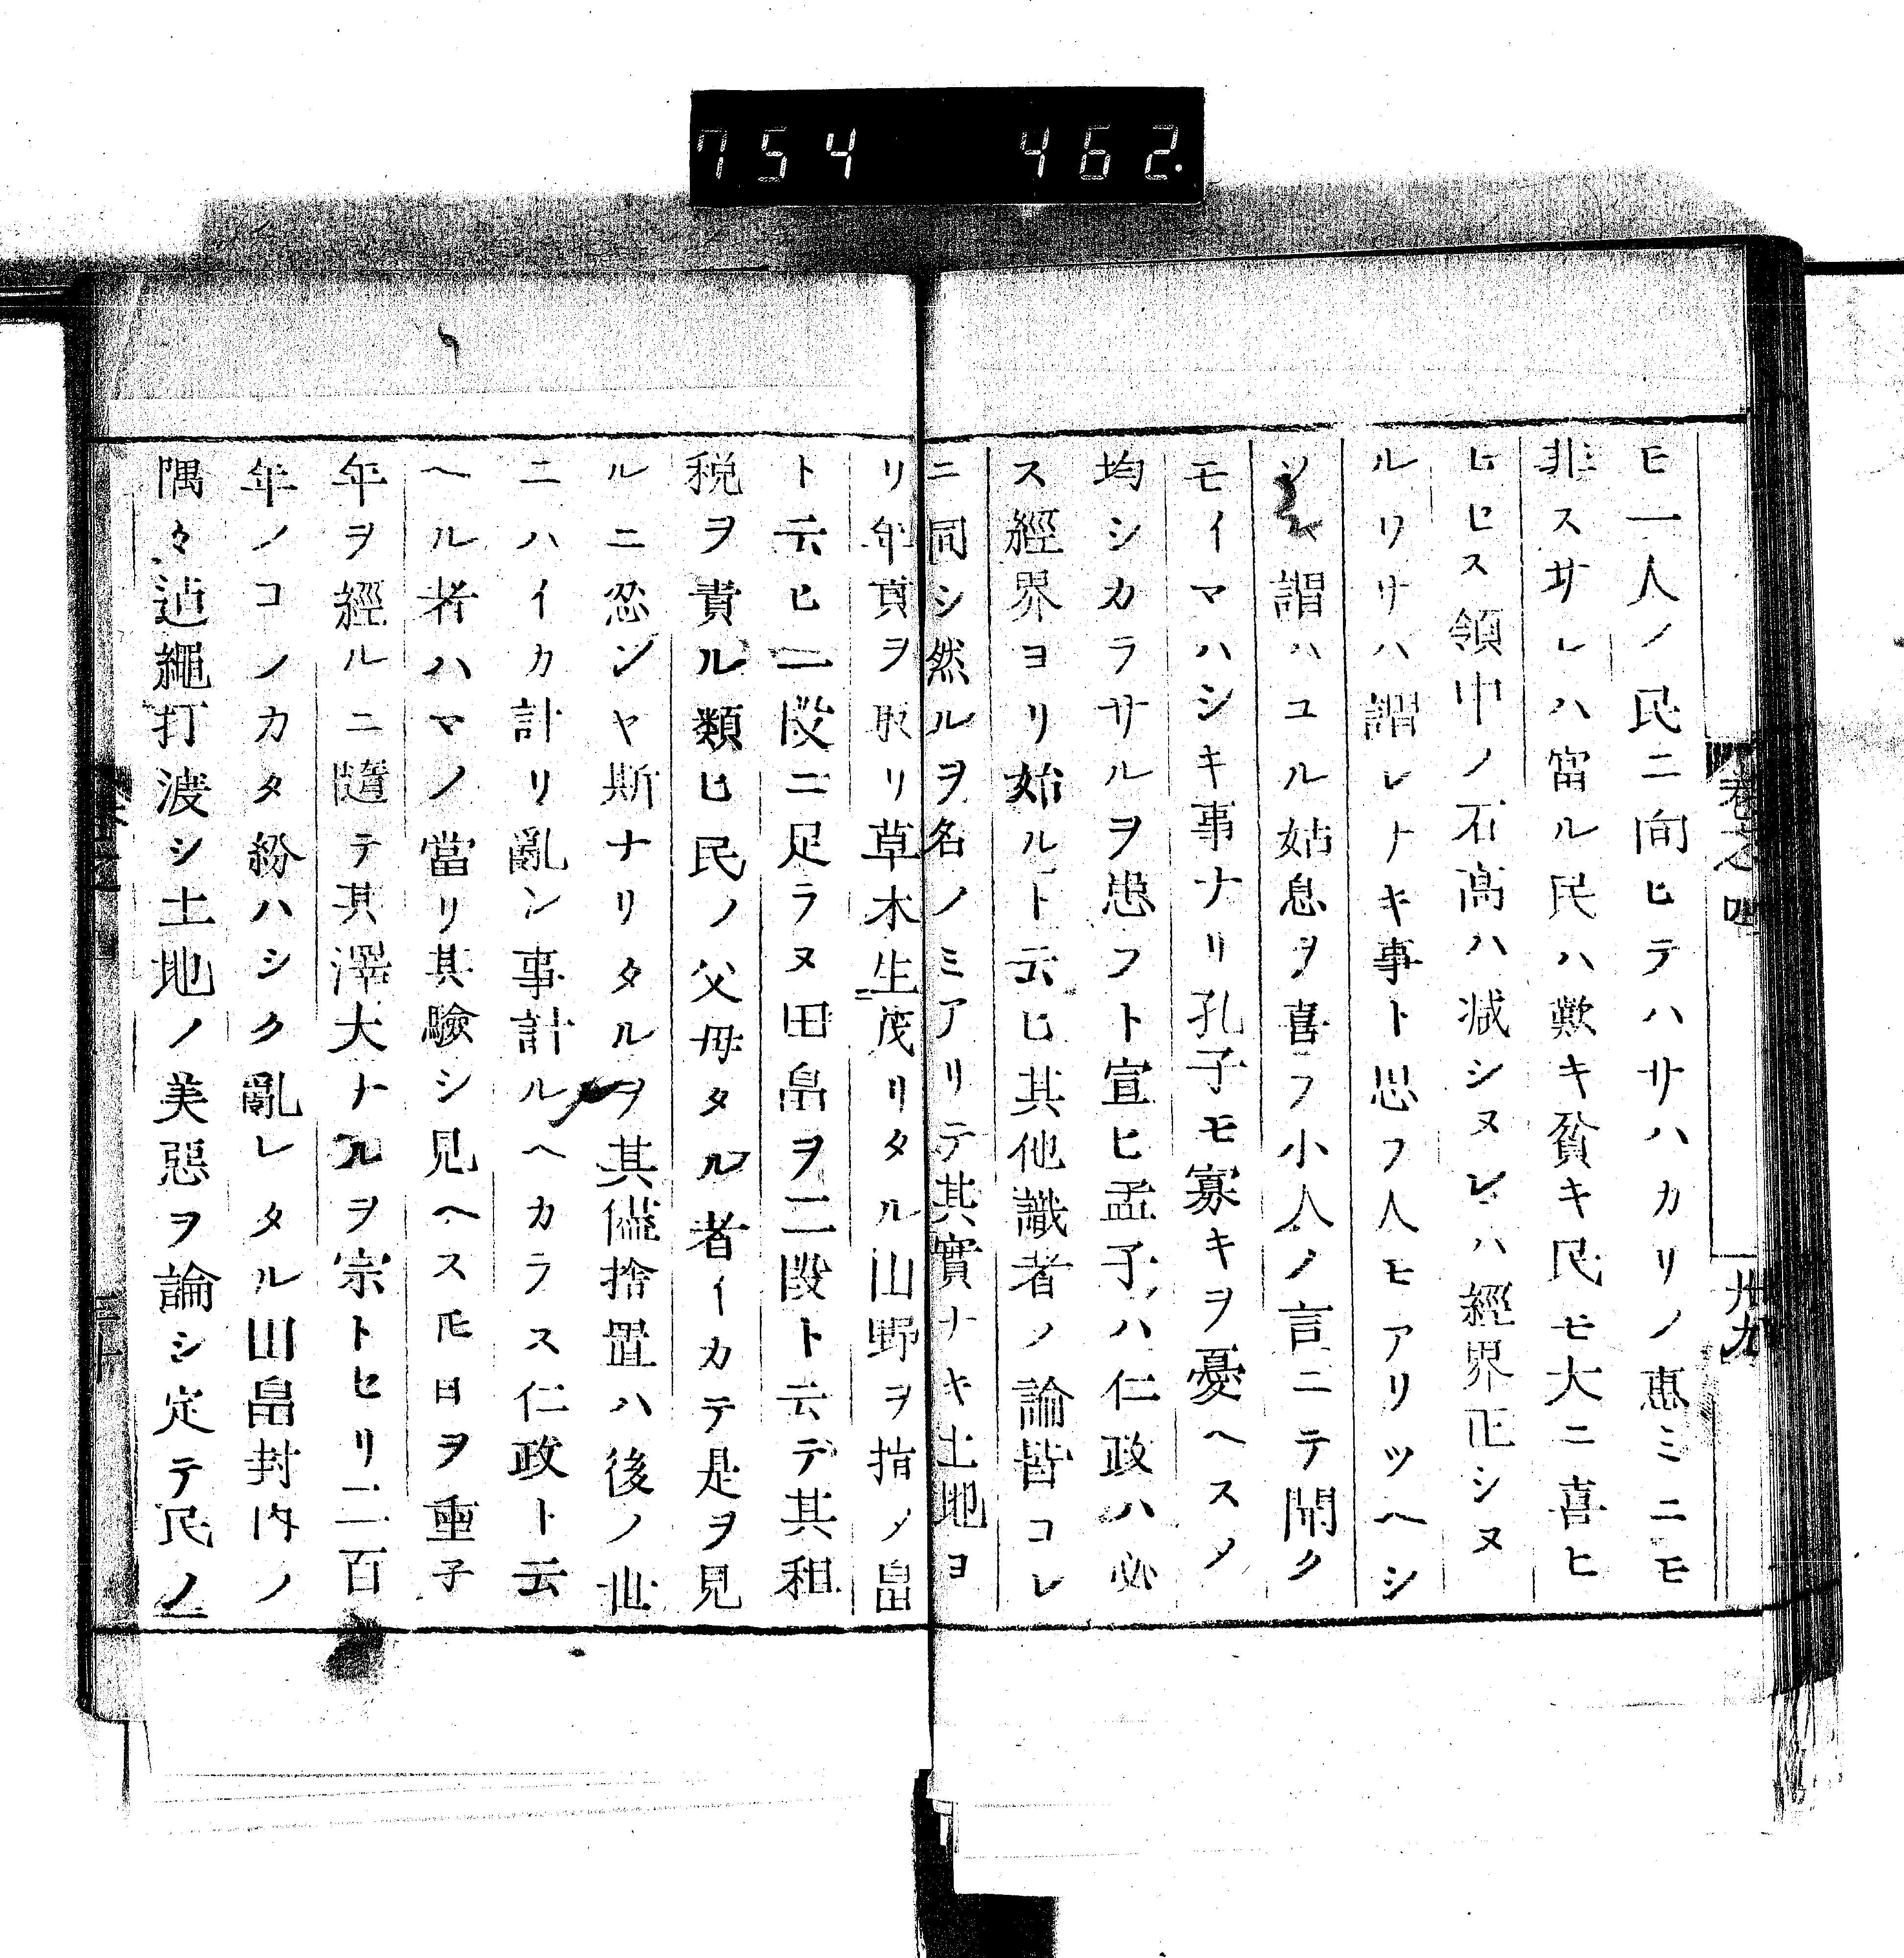 754 462.
卷之四
卅九
モ一人ノ民ニ向ヒテハサハカリノ惠ミニモ
非スサレハ富ル民ハ歎キ貧キ民モ大ニ喜ヒ
ヒセス領中ノ石高ハ減シヌレハ經界正シヌ
ルワサハ謂レナキ事ト思フ人モアリツヘシ
謂ハユル姑息ヲ喜フ小人ノ言ニテ聞ク
モイマハシキ事ナリ孔子モ寡キヲ憂ヘスメ
均シカラサルヲ患フト宣ヒ孟子ハ仁政ハ必
ス經界ヨリ始ルト云ヒ其他識者ノ論皆コレ
ニ同シ然ルヲ名ノミアリテ其實ナキ土地ヨ
リ年貢ヲ取リ草木生茂リタル山野ヲ指ノ畠
ト云ヒ一段ニ足ラヌ田畠ヲ二段ト云テ其租
税ヲ責ル類ヒ民ノ父母タル者イカテ是ヲ見
ルニ忍ンヤ斯ナリタルヲ其儘捨置ハ後ノ世
ニハイカ計リ亂ン事計ルヘカラス仁政ト云
ヘル者ハマノ當リ其驗シ見ヘス𪜈日ヲ重子
年ヲ經ルニ隨テ其澤大ナルヲ宗トセリ二百
年ノコノカタ紛ハシク亂レタル田畠封内ノ
隅々迠繩打渡シ土地ノ美惡ヲ論シ定テ民ノ